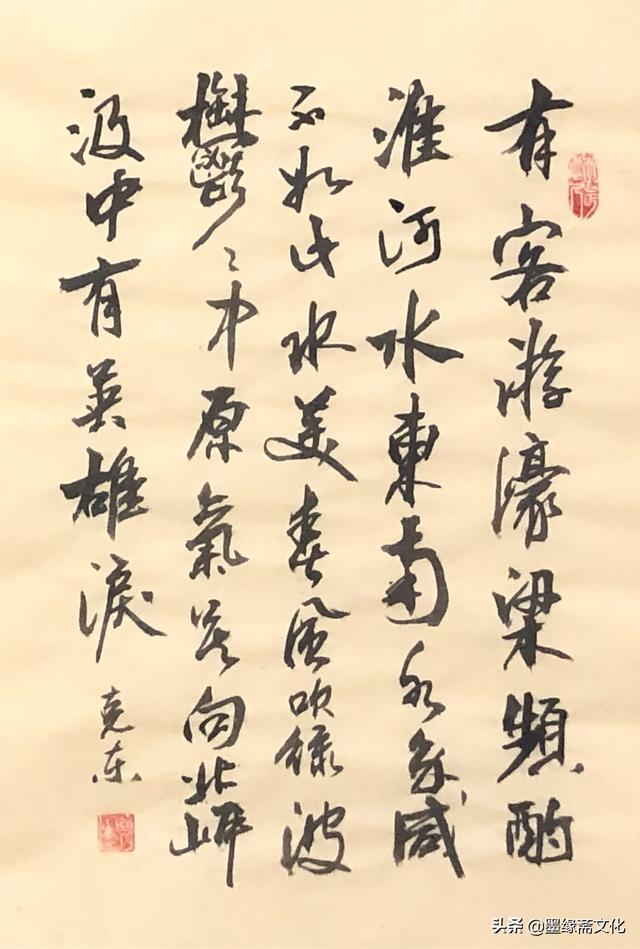 有客游濠梁頻酌
淮河水東南水多咸
不如此水美春風吹綠波
鬱〻中原氣莫向北岸
汲中有英雄淚
克东
头条 @墨缘斋文化